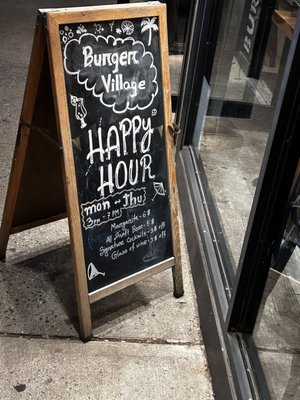 Burger
Village
HAPPY
HOUR
mon - Thu
3PM - 7PM
Margarita - 6$
All Draft Beer - 5$
Signature Cocktails - 3$ off
Glass of wine - 3$ off
BUR